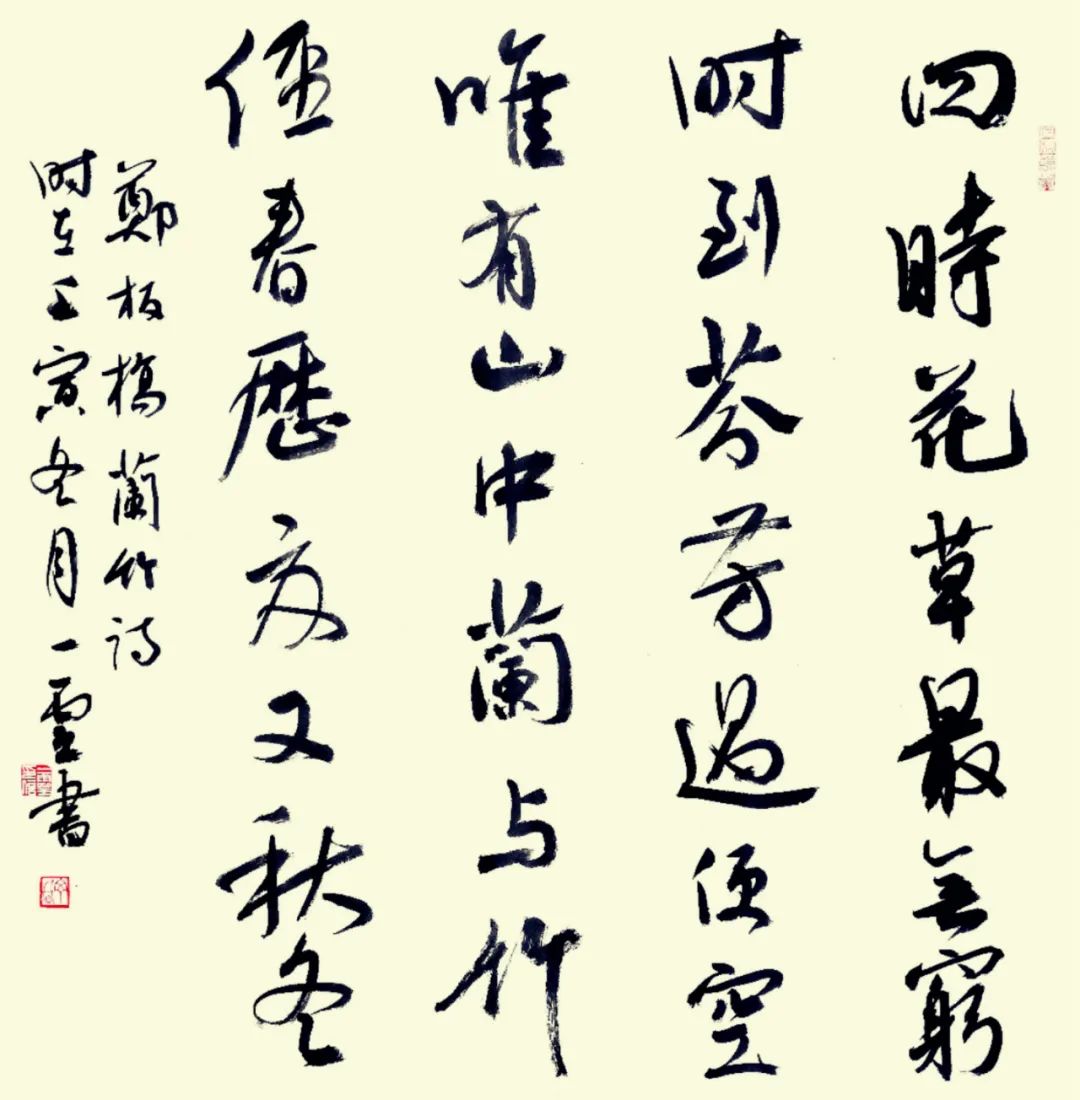 四時花草最无窮
时到芬芳過便空
唯有山中蘭与竹
經春歷夏又秋冬
鄭板橋蘭竹詩
时在壬寅冬月一靈書